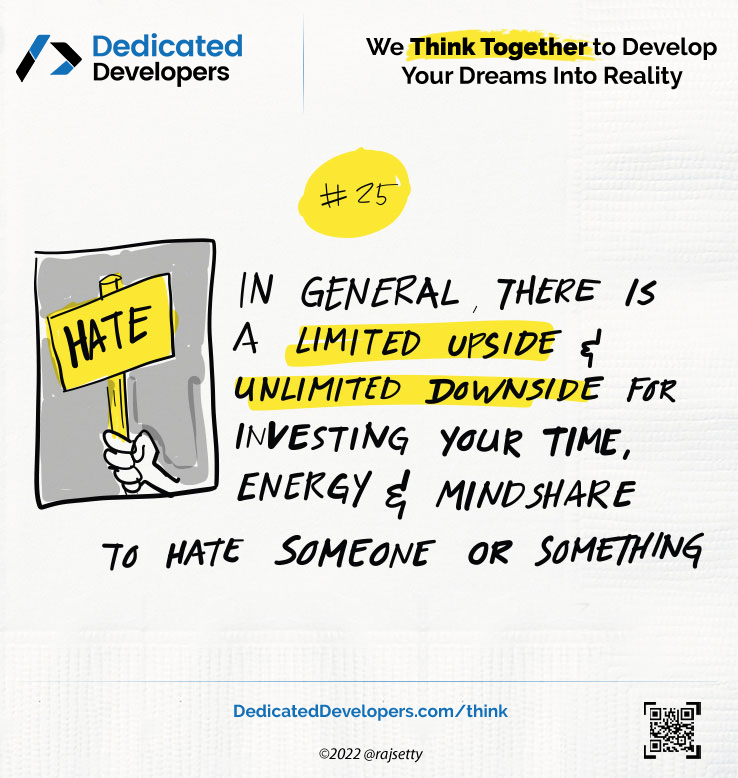 Dedicated
Developers
We Think Together to Develop
Your Dreams Into Reality
# 25
HATE
IN GENERAL, THERE IS
A LIMITED UPSIDE &
UNLIMITED DOWNSIDE FOR
INVESTING YOUR TIME,
ENERGY & MINDSHARE
TO HATE SOMEONE OR SOMETHING
DedicatedDevelopers.com/think
©2022 @rajsetty